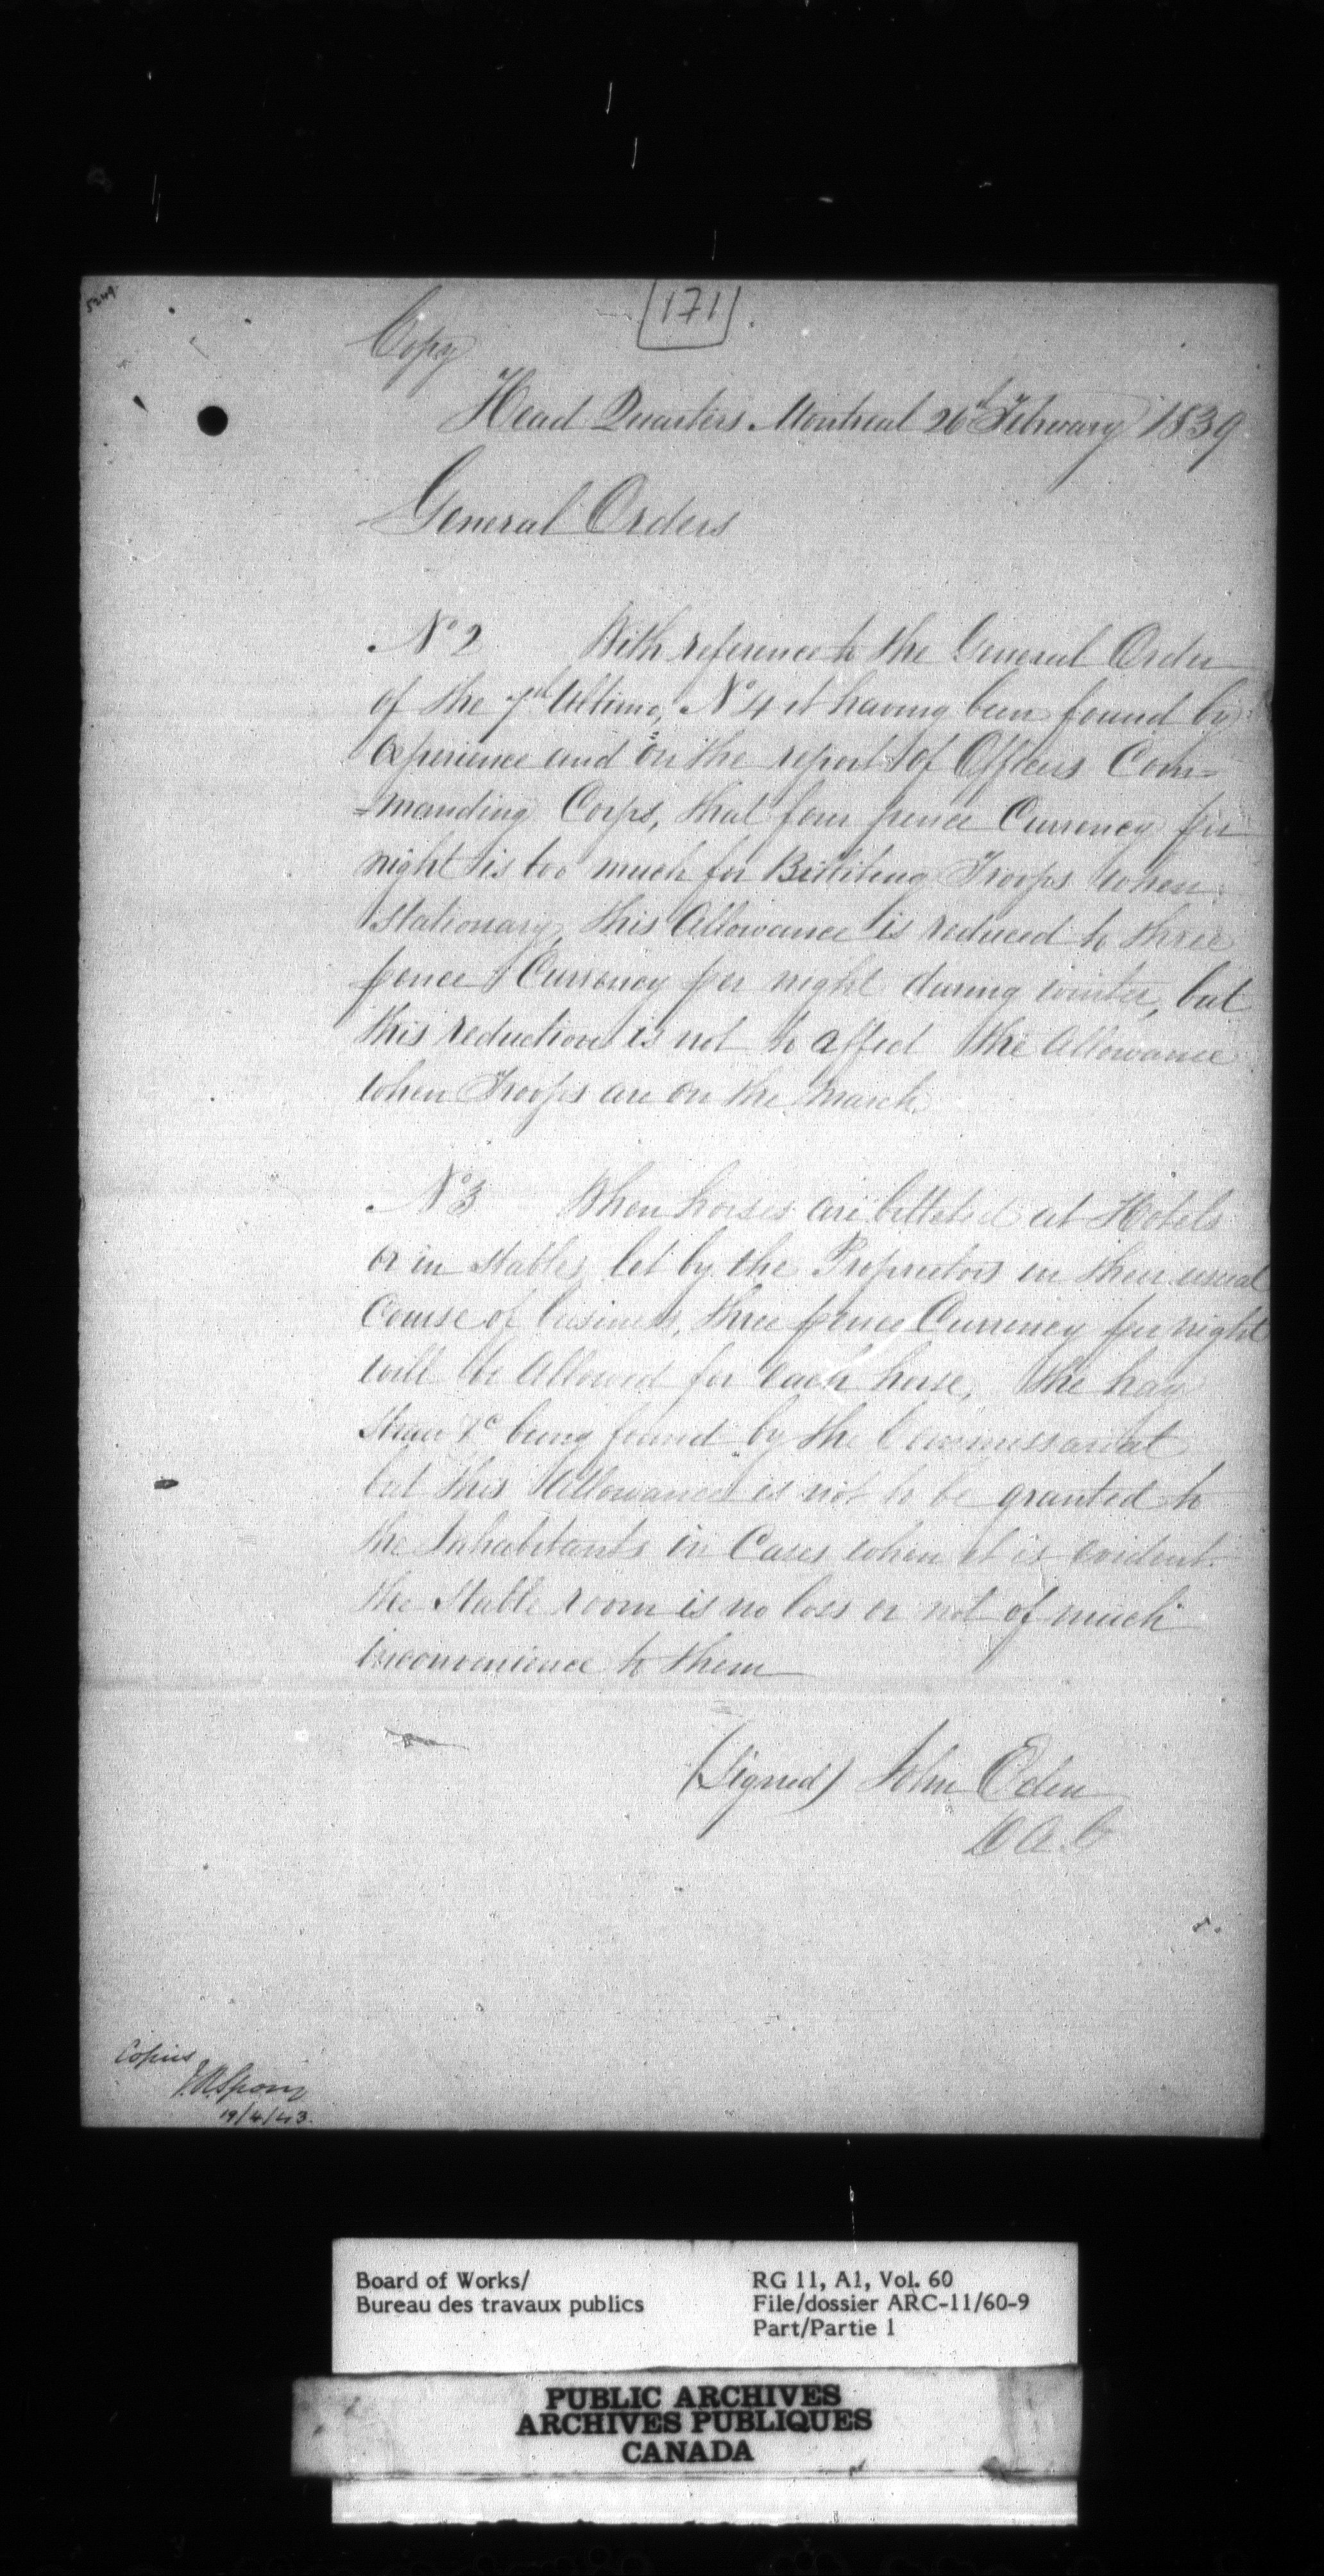 5249
171
Copy
Head Quarters Montreal 26th February 1839
General Orders
No 2 With reference to the General Order
of the 7th Ultimo, No 4 it having been found by
experience and on the report of Officers Com=
=manding Corps, that four pence Currency per
night is too much for Billiting Troops when
stationary, this Allowance is reduced to three
pence Currency per night during winter, but
this reduction is not to affect the Allowance
when Troops are on the March.
No 3 When horses are billeted at Hotels
or in stables let by the Proprietors in their usual
Course of business, three pence Currency per night
will be Allowed for each horse, the hay
straw &c being found by the Commissariat
but this Allowance is not to be granted to
the Inhabitants in Cases when it is evident
the Stable room is no loss or not of much
inconvenience to them
(Signed) John Eden
D A G
Copies
19/4/43.
Board of Works/
Bureau des travaux publics
RG 11, A1, Vol. 60
File/dossier ARC-11/60-9
Part/Partie 1
PUBLIC ARCHIVES
ARCHIVES PUBLIQUES
CANADA